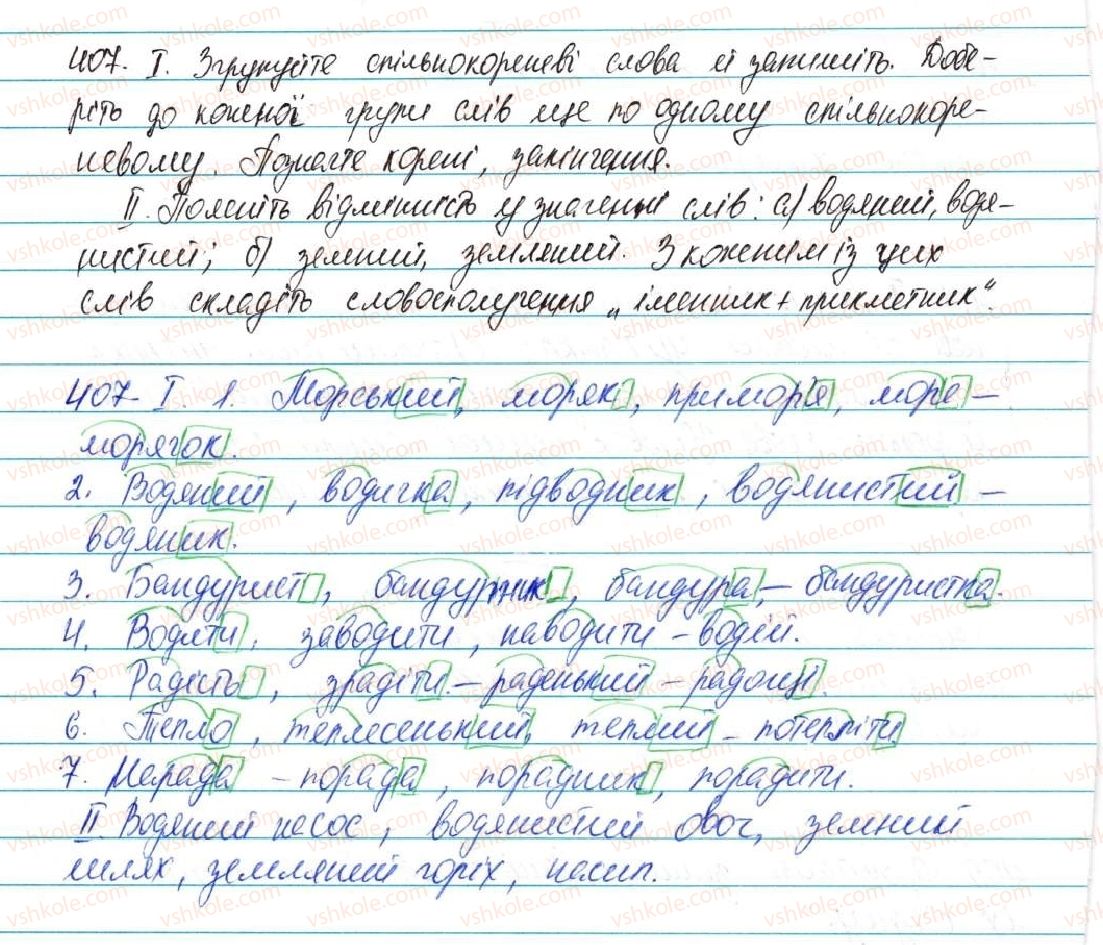 407. І. Згрупуйте спільнокореневі слова й запишіть. Добе-
ріть до кожної групи слів ще по одному спільнокоре-
невому. Позначте корені, закінчення.
ІІ. Поясніть відмінність у значенні слів: а) водяний, водя-
нистий; б) земний, земляний. З кожним із цих
слів складіть словосполучення „іменник + прикметник“.
407- І. 1. Морський, моряк, примор'я, море –
морячок.
2. Водяний, водичка, підводник, водянистий –
водяник.
3. Бандурист, бандурник, бандура, – бандуристка.
4. Водити, заводити, наводити – водій.
5. Радість, зрадіти – раденький – радощі.
6. Тепло, теплесенький, теплий – потепліти
7. Нарада – порада, порадник, порадити.
ІІ. Водяний насос, водянистий овоч, земний
шлях, земляний горіх, насип.